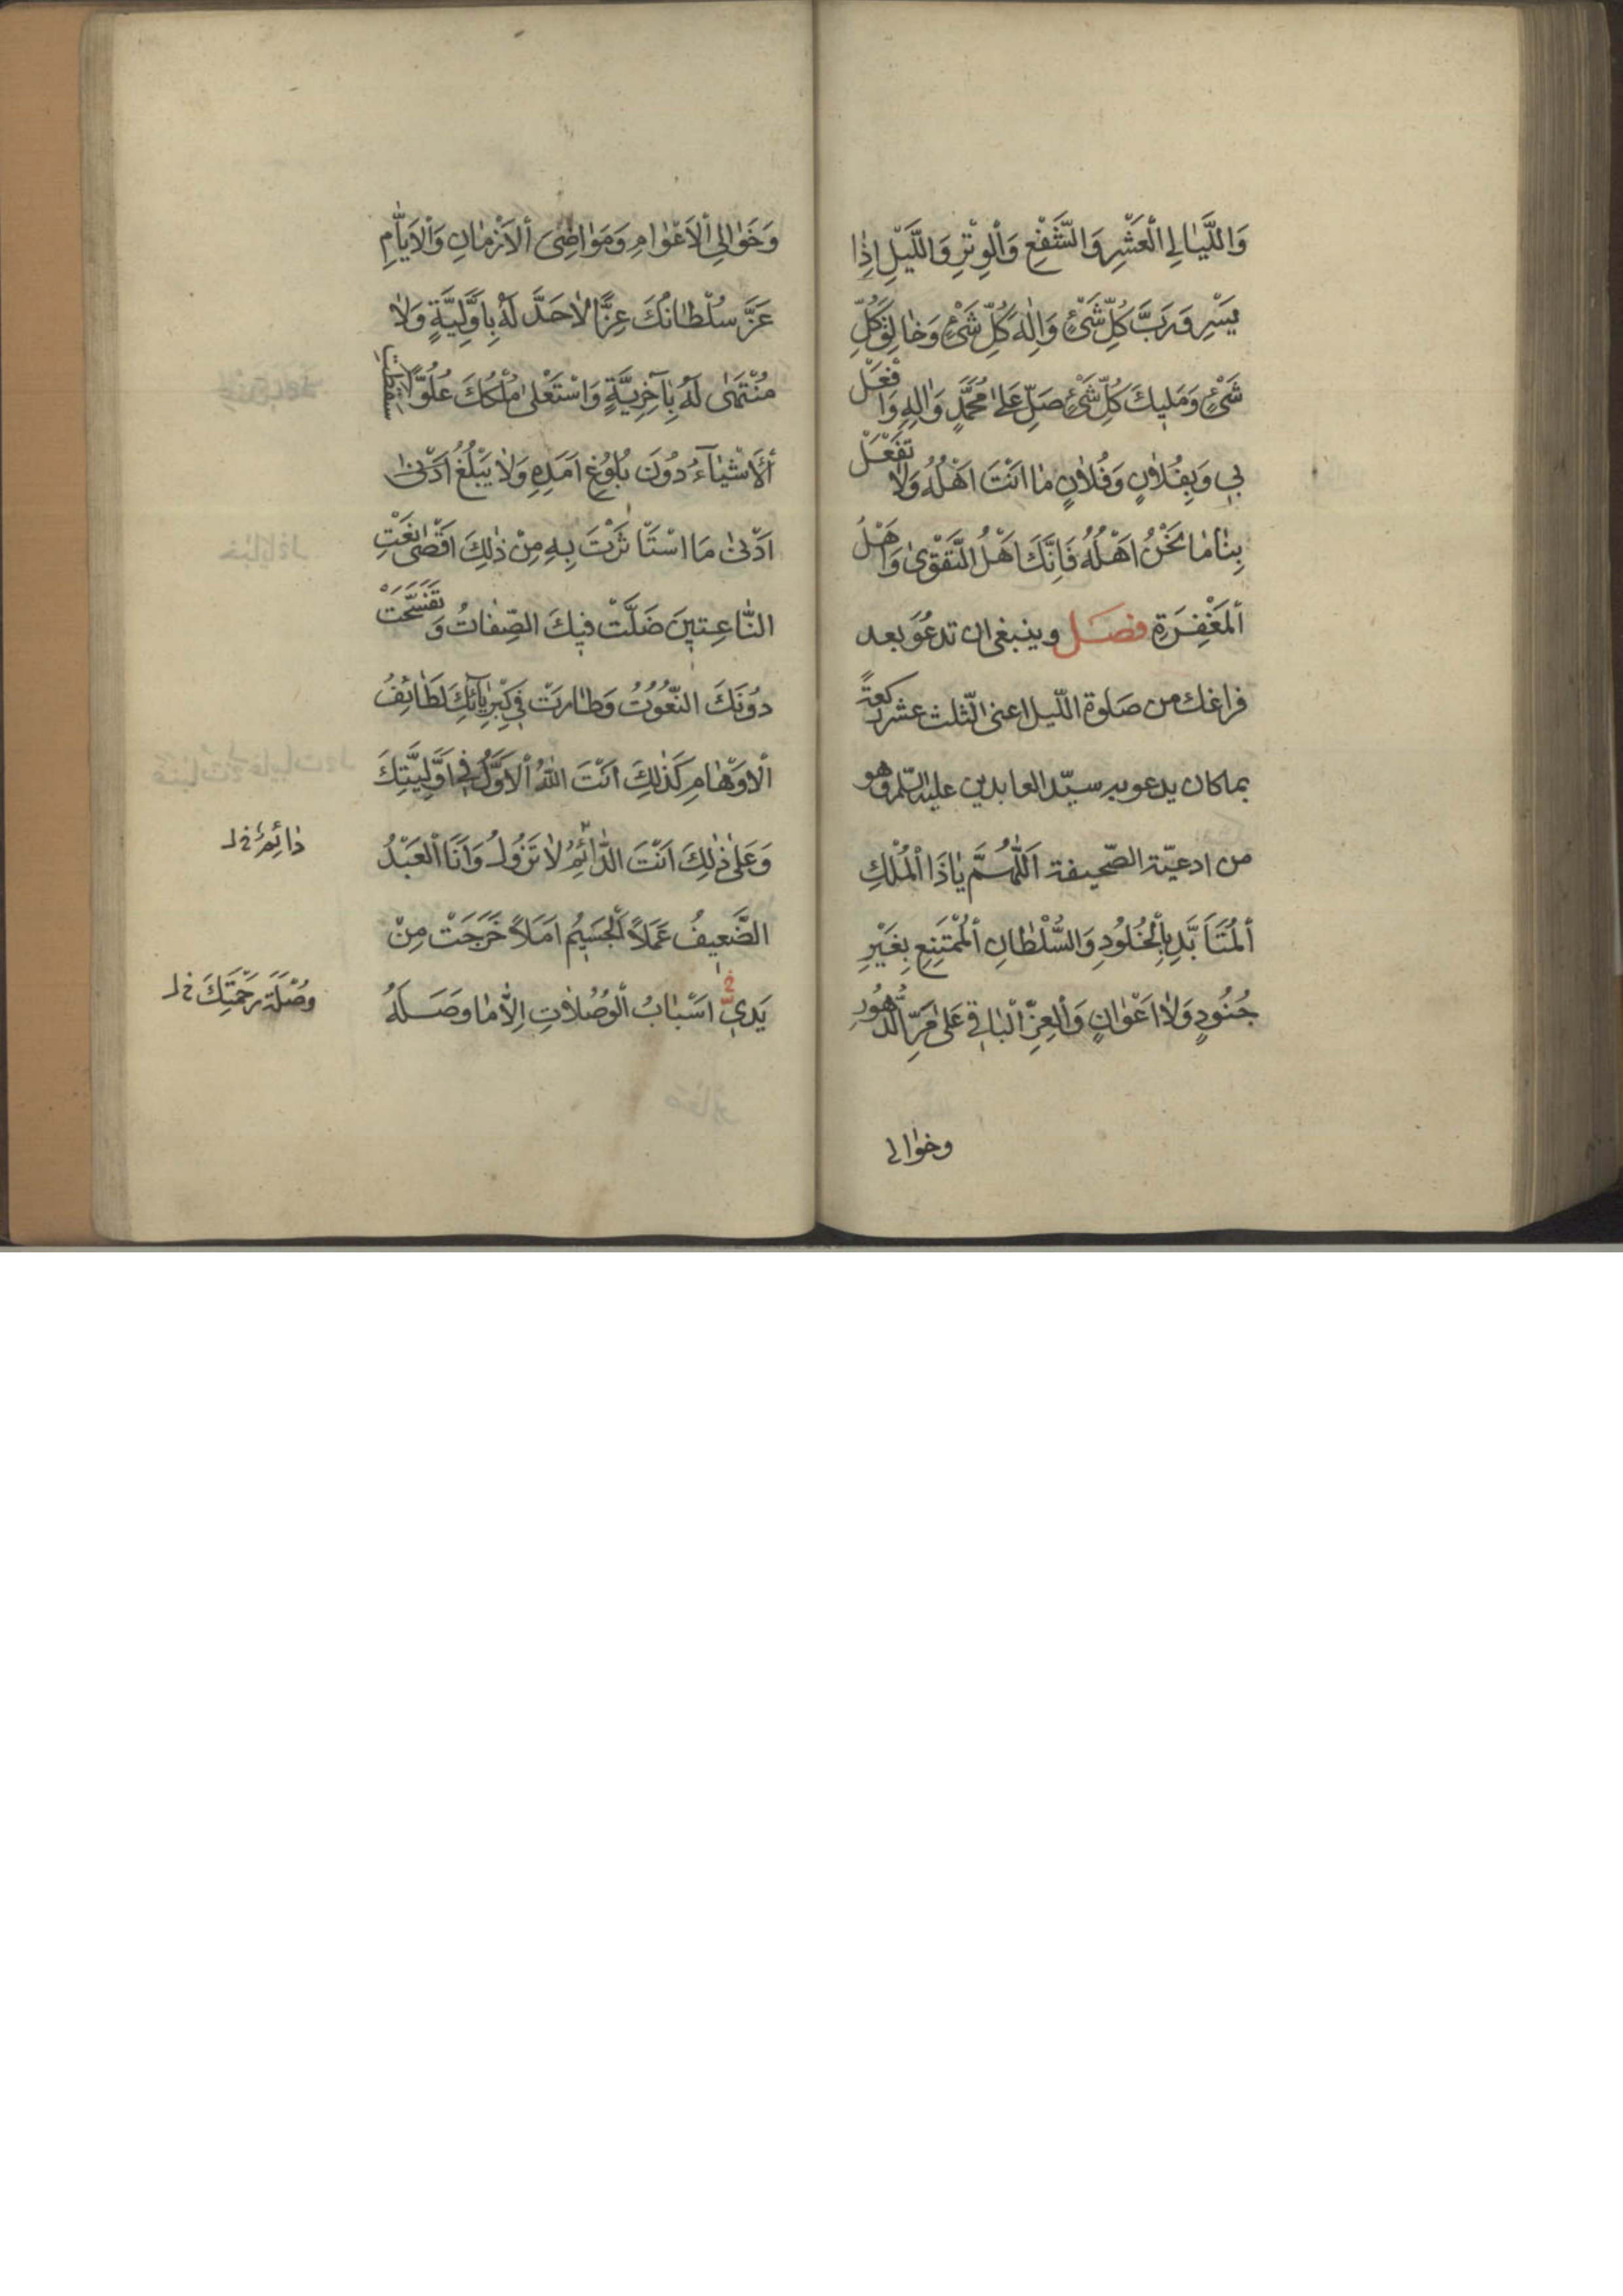 وَاللَّيٰالِي الْعَشْرِ وَالشَّفْعِ وَالْوِتْرِ وَاللَّيْلِ اِذٰا
يَسْرِ وَرَبَّ كُلِّ شَيْءٍ وَاِلٰهَ كُلِّ شَيْءٍ وَخٰالِقَ كُلِّ
شَيْءٍ وَمَلِيكَ كُلِّ شَيْءٍ صَلِّ عَلىٰ مُحَمَّدٍ وَاٰلِهِ وَافْعَلْ
بِي وَبِفُلاٰنٍ وَفُلاٰنٍ مٰا اَنْتَ اَهْلُهُ وَلاٰ تَفْعَلْ
بِنٰا مٰا نَحْنُ اَهْلُهُ فَاِنَّكَ اَهْلُ التَّقْوىٰ وَاَهْلُ
الْمَغْفِرَةِ فصل وينبغى ان تدعُوَ بعد
فراغك من صلوة اللّيل اعنى الثّلث عشر ركعةً
بما كان يدعو به سيّد العابدين عليه السّلم وهو
من ادعيّة الصّحيفة اَللّٰهُمَّ يٰا ذَا الْمُلْكِ
الْمُتَأَبَّدِ بِالْخُلُودِ وَالسُّلْطٰانِ الْمُمْتَنِعِ بِغَيْرِ
جُنُودٍ وَلاٰ اَعْوٰانٍ وَالْعِزِّ الْبٰاقِي عَلىٰ مَرِّ الدُّهُورِ
وخوالى
وَخَوٰالِي الْاَعْوٰامِ وَمَوٰاضِىَ الْاَزْمٰانِ وَالْاَيّٰامِ
عَزَّ سُلْطٰانُكَ عِزًّا لاٰ حَدَّ لَهُ بِاَوَّلِيَّةٍ وَلاٰ
مُنْتَهىٰ لَهُ بِاٰخِرِيَّةٍ وَاسْتَعْلىٰ مُلْكُكَ عُلُوًّا سَقَطَتِ
الْاَشْيٰآءُ دُونَ بُلُوغِ اَمَدِهِ وَلاٰ يَبْلُغُ اَدْنىٰ
اَدْنىٰ مَا اسْتَأْثَرْتَ بِهِ مِنْ ذٰلِكَ اَقْصىٰ نَعْتِ
النّٰاعِتِينَ ضَلَّتْ فِيكَ الصِّفٰاتُ وَتَفَسَّخَتْ
دُونَكَ النُّعُوتُ وَطٰارَتْ فِي كِبْرِيٰآئِكَ لَطٰائِفُ
الْاَوْهٰامِ كَذٰلِكَ اَنْتَ اللّٰهُ الْاَوَّلُ فِي اَوَّلِيَّتِكَ
وَعَلىٰ ذٰلِكَ اَنْتَ الدّٰائِمُ لاٰ تَزُولُ وَاَنَا الْعَبْدُ
دٰائِمٌ خ ل
الضَّعِيفُ عَمَلاً الْجَسِيمُ اَمَلاً خَرَجَتْ مِنْ
يَدِيَّ اَسْبٰابُ الْوُصُلاٰتِ اِلاّٰ مٰا وَصَلَهُ
وُصْلَةُ رَحْمَتِكَ خ ل